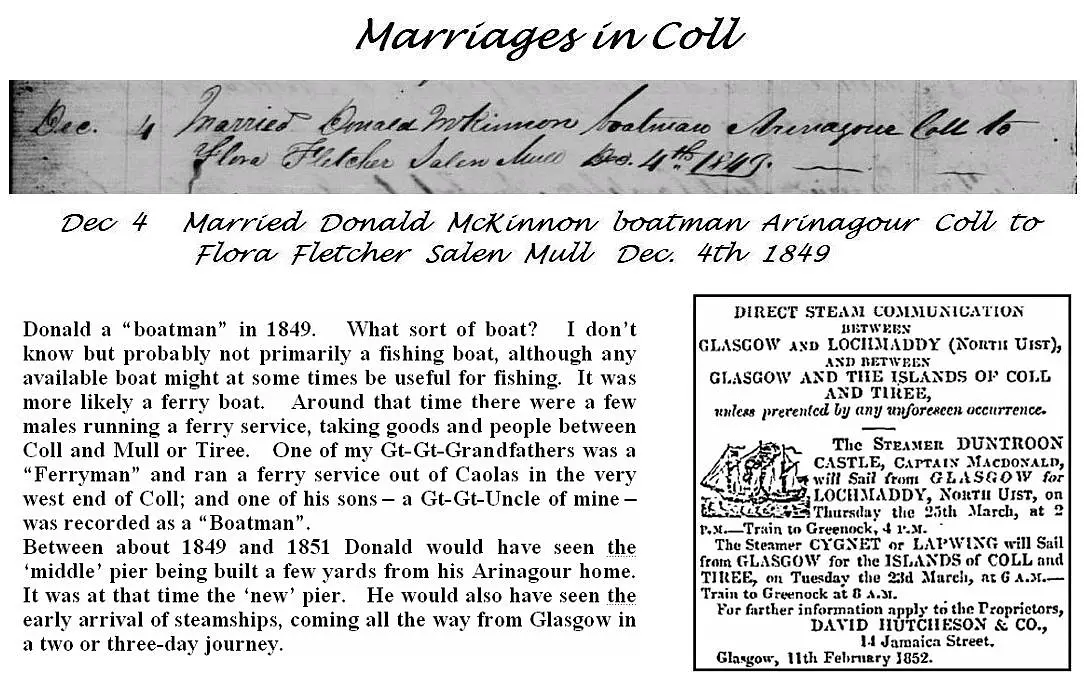 Marriages in Coll
Dec. 4 Married Donald McKinnon boatman Arinagour Coll to
Flora Fletcher Salen Mull Dec. 4th 1849.
Dec 4 Married Donald McKinnon boatman Arinagour Coll to
Flora Fletcher Salen Mull Dec. 4th 1849
Donald a “boatman” in 1849. What sort of boat? I don’t
know but probably not primarily a fishing boat, although any
available boat might at some times be useful for fishing. It was
more likely a ferry boat. Around that time there were a few
males running a ferry service, taking goods and people between
Coll and Mull or Tiree. One of my Gt-Gt-Grandfathers was a
“Ferryman” and ran a ferry service out of Caolas in the very
west end of Coll; and one of his sons – a Gt-Gt-Uncle of mine –
was recorded as a “Boatman”.
Between about 1849 and 1851 Donald would have seen the
‘middle’ pier being built a few yards from his Arinagour home.
It was at that time the ‘new’ pier. He would also have seen the
early arrival of steamships, coming all the way from Glasgow in
a two or three-day journey.
DIRECT STEAM COMMUNICATION
BETWEEN
GLASGOW AND LOCHMADDY (NORTH UIST),
AND BETWEEN
GLASGOW AND THE ISLANDS OF COLL
AND TIREE,
unless prevented by any unforeseen occurrence.
THE STEAMER DUNTROON
CASTLE, CAPTAIN MACDONALD,
will Sail from GLASGOW for
LOCHMADDY, NORTH UIST, on
Thursday the 25th March, at 2
P.M.—Train to Greenock, 4 P.M.
The Steamer CYGNET or LAPWING will Sail
from GLASGOW for the ISLANDS of COLL and
TIREE, on Tuesday the 23d March, at 6 A.M.—
Train to Greenock at 8 A.M.
For farther information apply to the Proprietors,
DAVID HUTCHESON & CO.,
14 Jamaica Street.
Glasgow, 11th February 1852.